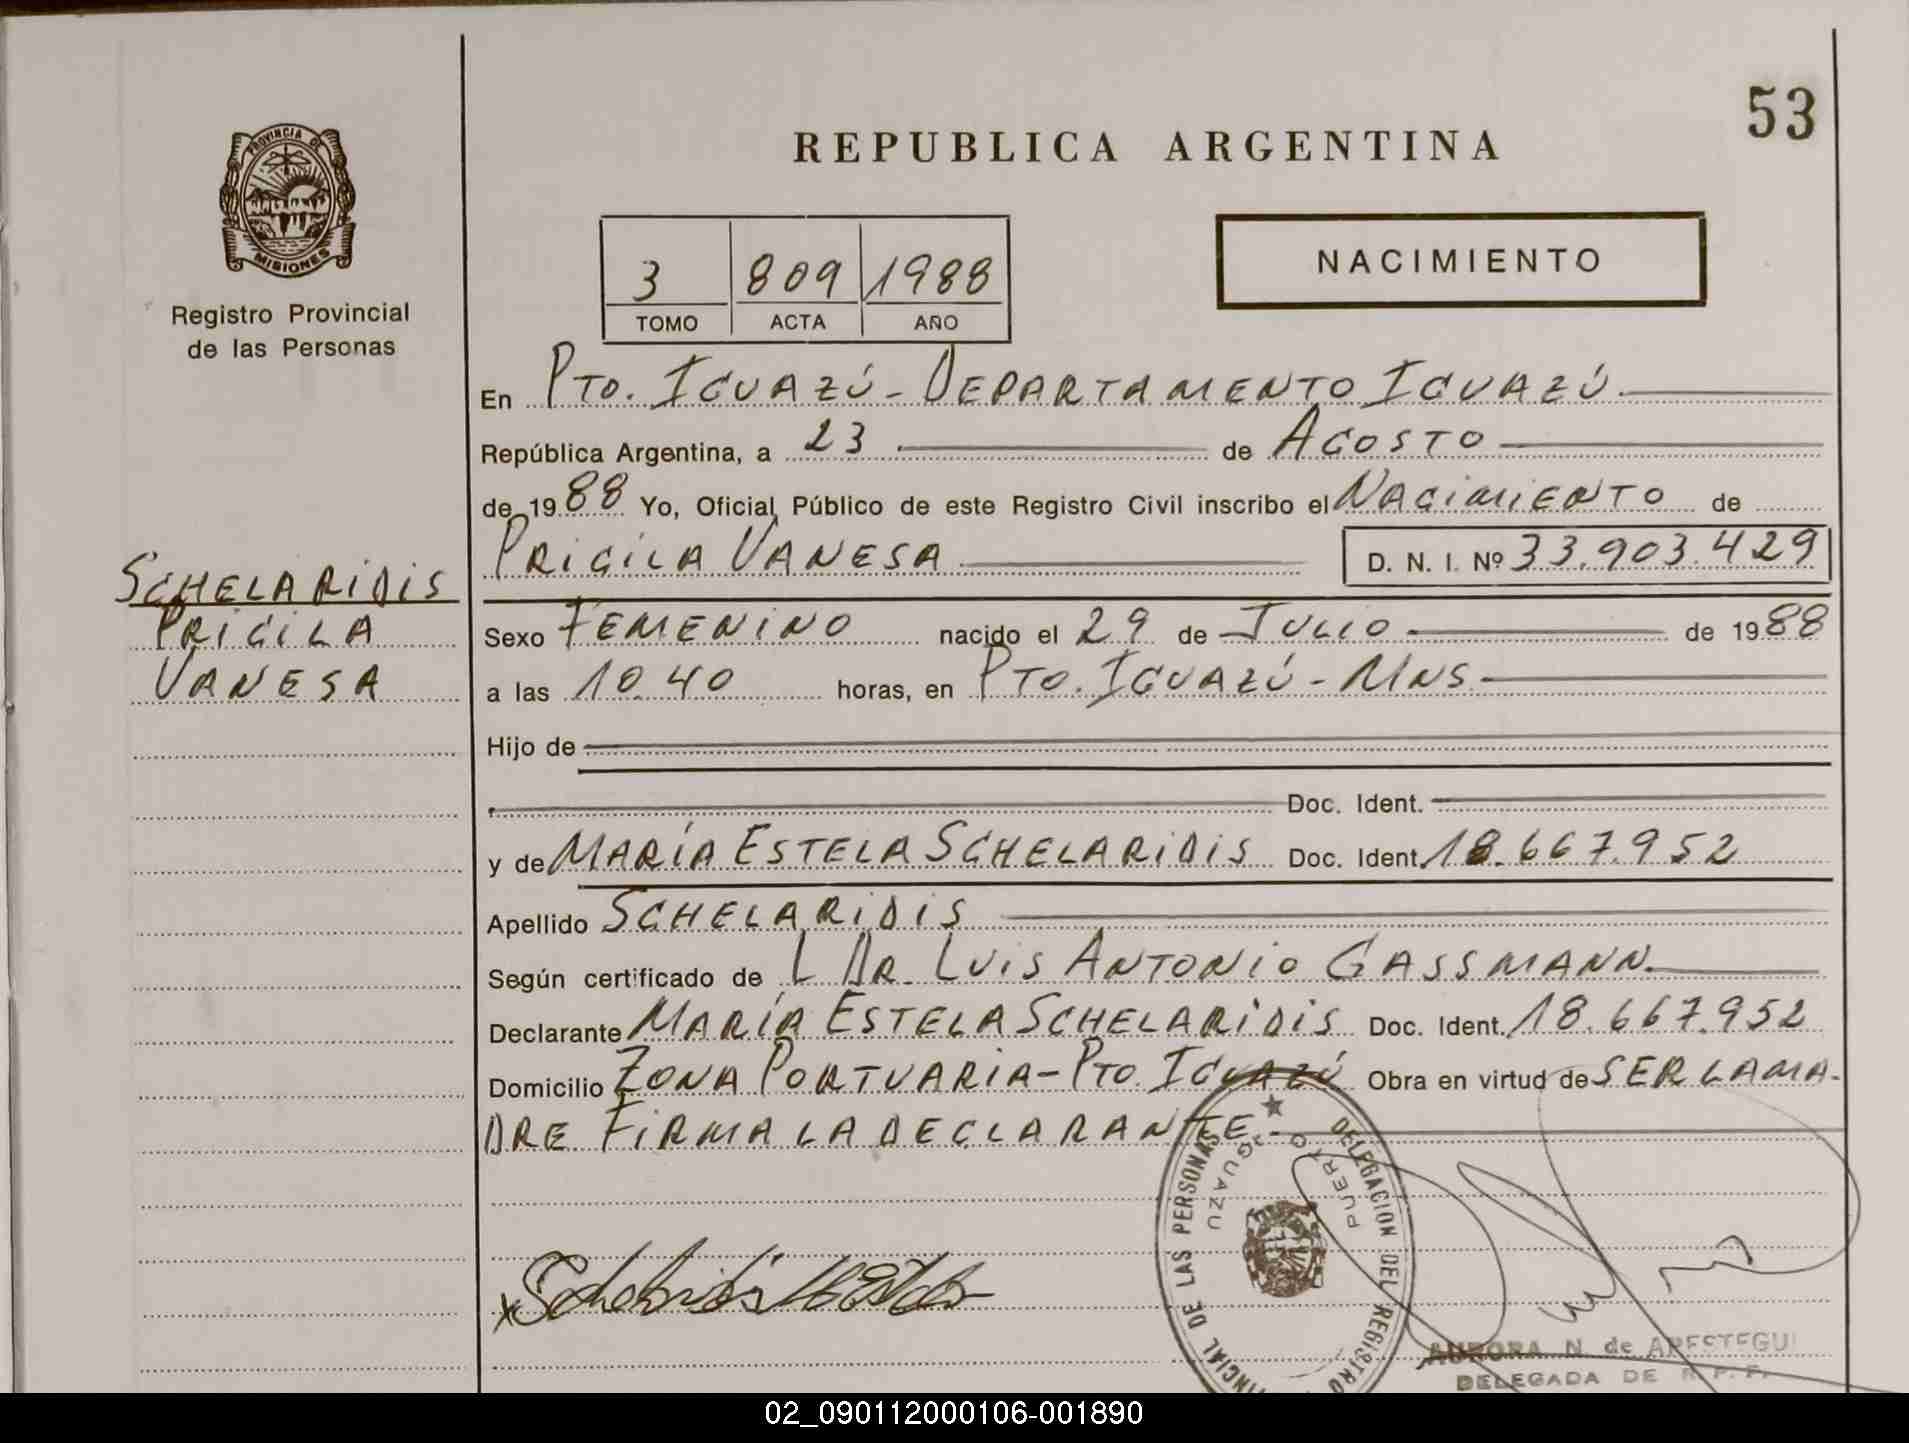 53
REPUBLICA ARGENTINA
PROVINCIA DE
MISIONES
Registro Provincial
de las Personas
3 809 1988
TOMO ACTA AÑO
NACIMIENTO
En PTO. IGUAZÚ - DEPARTAMENTO IGUAZÚ
República Argentina, a 23 de AGOSTO
de 1988 Yo, Oficial Público de este Registro Civil inscribo el NACIMIENTO de
PRICILA VANESA D. N. I. Nº 33.903.429
SCHELARIDIS
PRICILA
VANESA
Sexo FEMENINO nacido el 29 de JULIO de 1988
a las 10.40 horas, en PTO. IGUAZÚ - MNS
Hijo de
Doc. Ident.
y de MARÍA ESTELA SCHELARIDIS Doc. Ident. 18.667.952
Apellido SCHELARIDIS
Según certificado de L DR. LUIS ANTONIO GASSMANN
Declarante MARÍA ESTELA SCHELARIDIS Doc. Ident. 18.667.952
Domicilio ZONA PORTUARIA - PTO. IGUAZÚ Obra en virtud de SER LA MA-
DRE FIRMA LA DECLARANTE
DELEGACION DEL REGISTRO PROVINCIAL DE LAS PERSONAS
PUERTO IGUAZU
AURORA N. de ARESTEGUI
DELEGADA DE R. P. P.
02_090112000106-001890